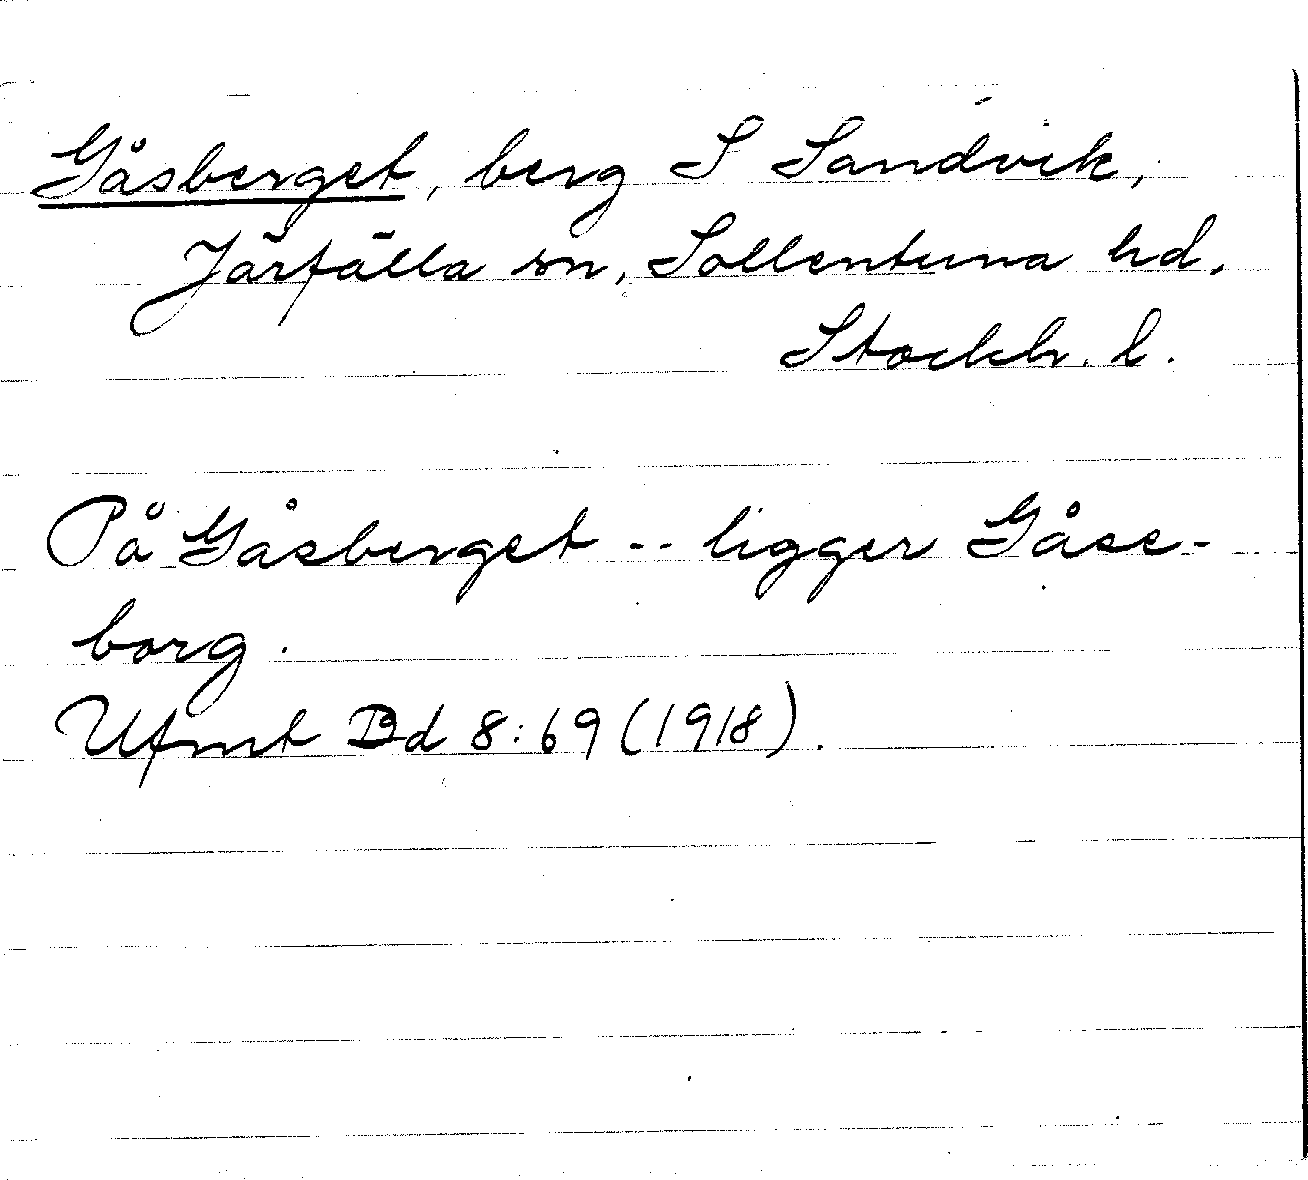 Gåsberget, berg S Sandvik,
Järfälla sn, Sollentuna hd,
Stockh. l.
På Gåsberget -- ligger Gåse-
borg.
Ufmt Bd 8:69 (1918).